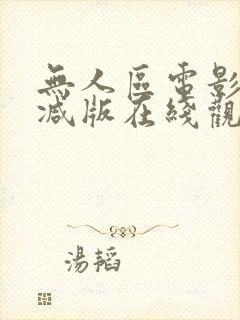 無人區電影
減版在綫觀
湯韜